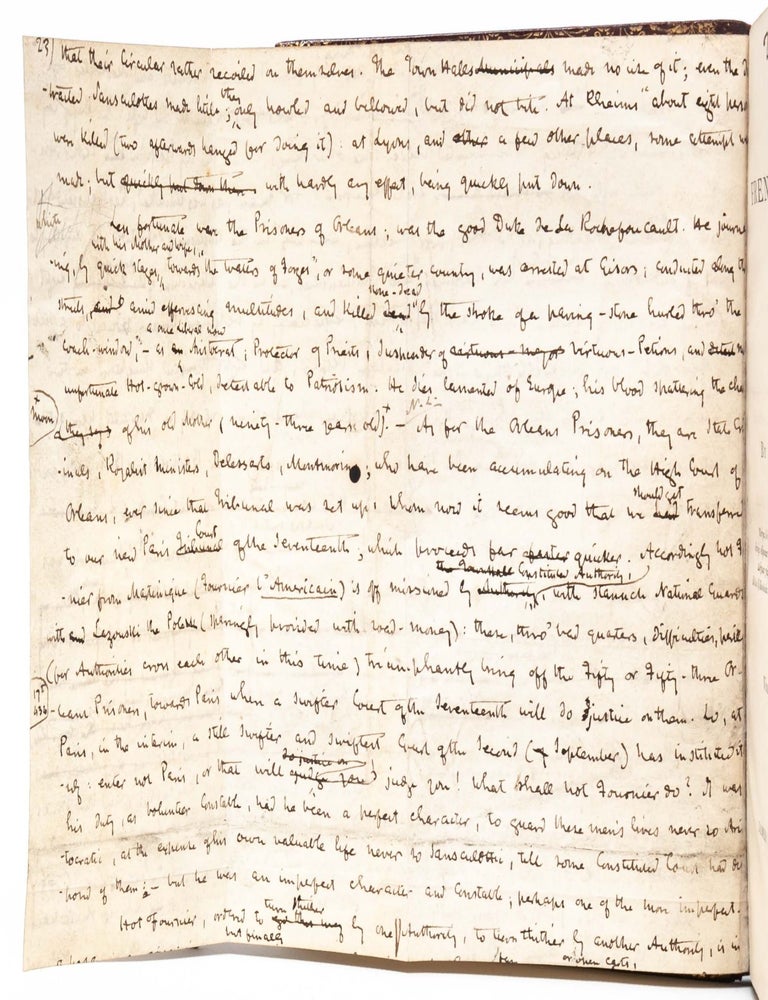 23) that their Circular rather recoiled on themselves. The Town Halls municipals made no use of it; even the d
-tracted Sansculottes made little; they only howled and bellowed, but did not bite. At Rheims "about eight perso
were killed (two afterwards hanged for doing it): at Lyons, and other a few other places, some attempt w
made; but quickly put down then with hardly any effect, being quickly put down.
white
Less fortunate were the Prisoners of Orleans; was the good Duke de La Rochefoucault. He journe
with his Mother and wife,
-ing, by quick stages, towards the "waters of Forges", or some quieter country, was arrested at Gisors; conducted along the
stone-dead
streets, and amid effervescing multitudes, and killed dead "by the stroke of a paving-stone hurled thro' the
a once Liberal now
coach-window," – as an Aristocrat; Protector of Priests, Suspender of virtuous-mayors virtuous-Petions, and
unfortunate Hot-grown-Cold, detestable to Patriotism. He dies lamented of Europe; his blood spattering the che
mom
N.L.
a they says of his old Mother (ninety-three years old).+ – As for the Orleans Prisoners, they are State Cri
-inals, Royalist Ministers, Delessarts, Montmorins; who have been accumulating on the High Court of
Orleans, ever since that Tribunal was set up: whom now it seems good that we should get had transferred
to our new Paris Tribunal Court of the Seventeenth; which proceeds far faster quicker. Accordingly hot F
the Townhall Constituted Authority,
-nier from Martinique (Fournier l'Americain) is off missioned by Authority, with staunch National Guards
with and Lazouski the Polack (sparingly provided with road-money): these, thro' bad quarters, difficulties, perils
(for Authorities cross each other in this time) triumphantly bring off the Fifty or Fifty-three Or-
-leans Prisoners, towards Paris when a swifter Court of the Seventeenth will do justice on them. Lo, at
Paris, in the interim, a still swifter and swiftest Court of the Second (of September) has instituted it
do justice on
-self: enter not Paris, or that will judge you! judge you! What shall not Fournier do? It was
his duty, as volunteer Constable, had he been a perfect character, to guard these men's lives never so Aris
-tocratic, at the expense of his own valuable life never so Sansculottic, till some Constituted Court had dis
-posed of them: – but he was an imperfect character and Constable; perhaps one of the more imperfect.
turn thither
Hot Fournier, ordered to go this way by one Authority, to turn thither by another Authority, is in
but finally
or open carts,